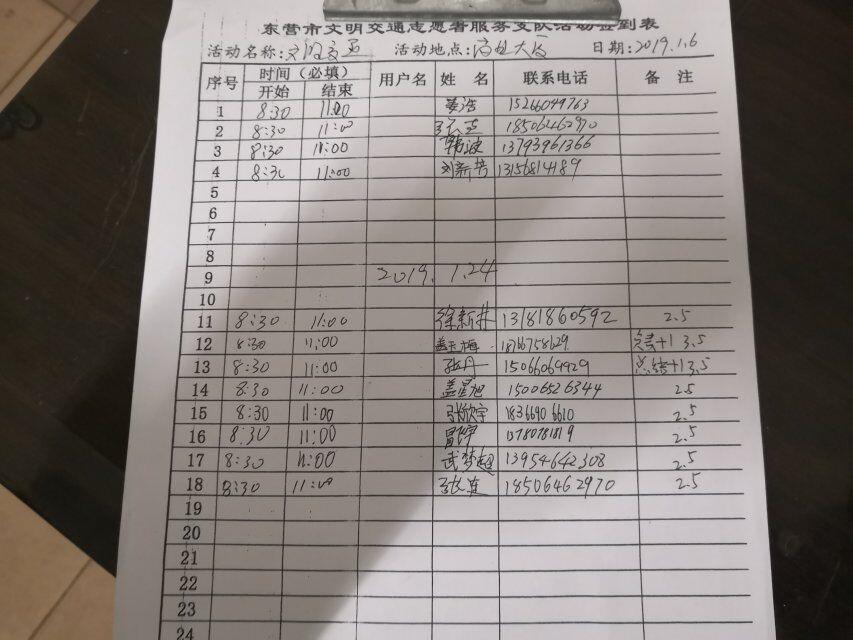 东营市文明交通志愿者服务支队活动签到表
活动名称:文明交通 活动地点: 大厦 日期:2019.1.6
序号 时间（必填） 用户名 姓 名 联系电话 备 注
开始 结束
1 8:30 11:00 姜浩 15266049763
2 8:30 11:00 18506462970
3 8:30 11:00 韩波 13793961366
4 8:30 11:00 刘新芳 13156814189
5
6
7
8
9 2019. 1.24
10
11 8:30 11:00 徐新井 13181860592 2.5
12 8:30 11:00 盖玉梅 18766758629 +1 3.5
13 8:30 11:00 张丹 15066069929 总结+1 3.5
14 8:30 11:00 盖星旭 15006526344 2.5
15 8:30 11:00 张欣宇 18366906610 2.5
16 8:30 11:00 2.5
17 8:30 11:00 武梦超 13954642308 2.5
18 8:30 11:00 18506462970 2.5
19
20
21
22
23
24